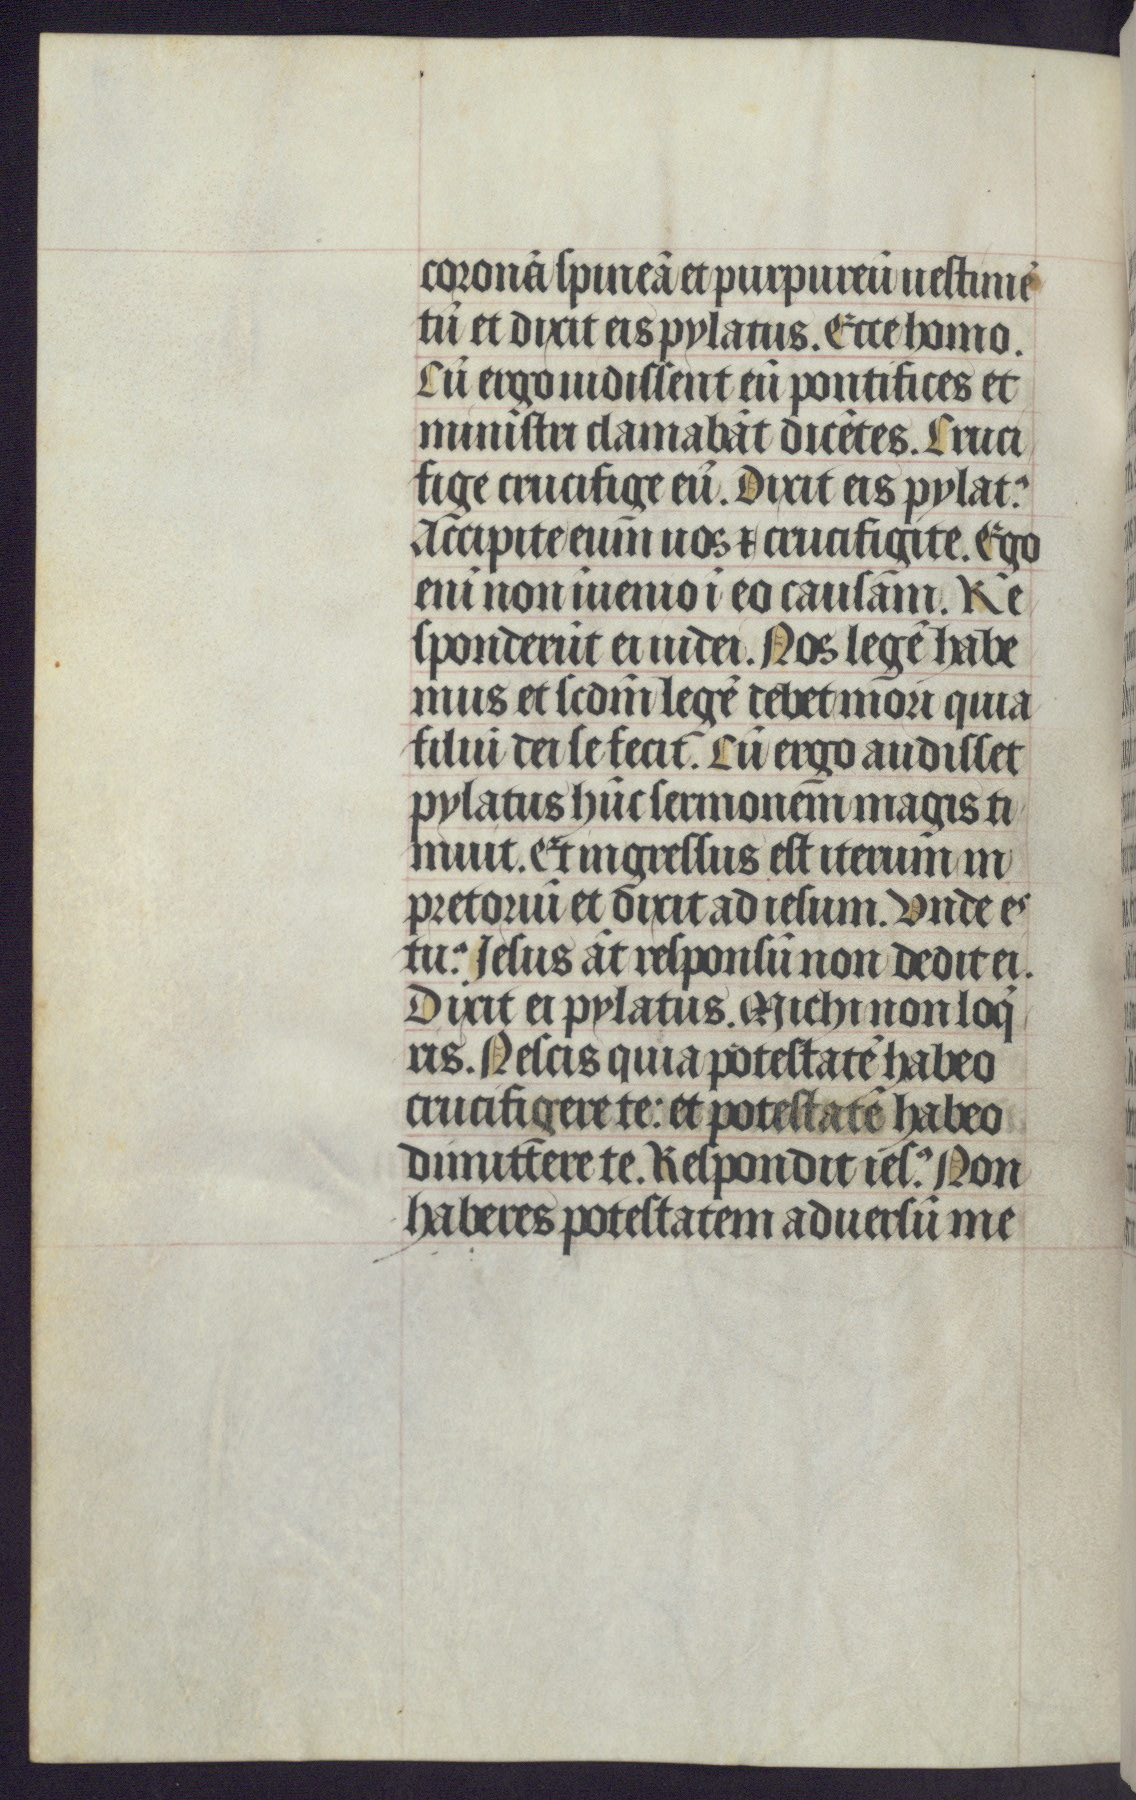 coronā spineā et purpureū uestimē
tū et dixit eis pylatus. Ecce homo.
Cū ergo uidissent eū pontifices et
ministri clamabāt dicētes. Cruci
fige crucifige eū. Dixit eis pylatꝰ
Accipite eum uos ⁊ crucifigite. Ego
enī non inuenio ī eo causam. Re
sponderūt ei iudei. Nos legē habe
mus et scd̄m legē debet mori quia
filiū dei se fecit. Cū ergo audisset
pylatus hūc sermonem magis ti
muit. Et ingressus est iterum in
pretoriū et dixit ad iesum. Vnde es
tu? Jesus āt responsū non dedit ei.
Dixit ei pylatus. Michi non loq̄
ris. Nescis quia potestatē habeo
crucifigere te: et potestatē habeo
dimittere te. Respondit iesꝰ Non
haberes potestatem aduersū me